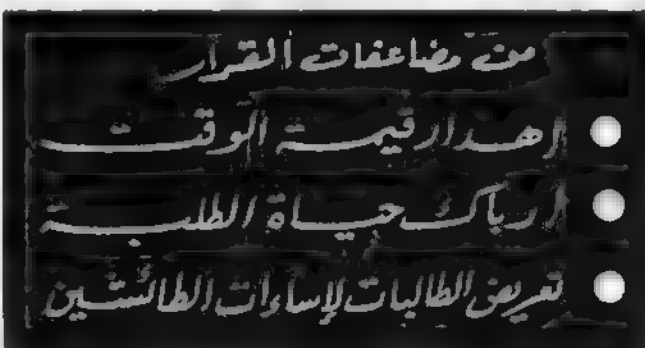 من مضاعفات القرار
إهدار قيمة الوقت
إرباك حياة الطلبة
تعريض الطالبات لإساءات الطائشين